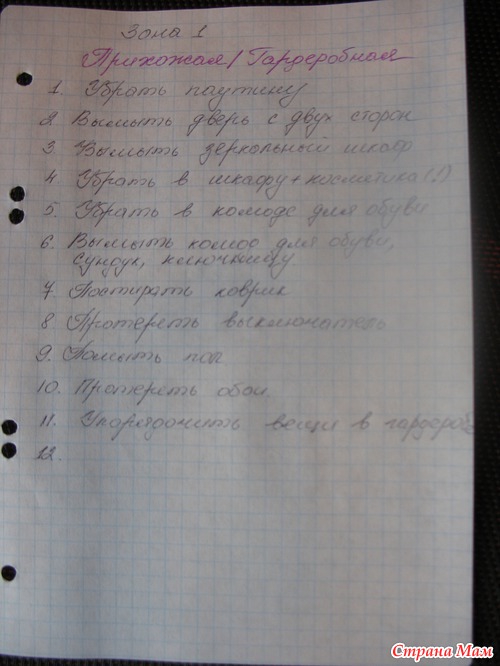 Зона 1
Прихожая/Гардеробная
1. Убрать паутину
2. Вымыть дверь с двух сторон
3. Вымыть зеркальный шкаф
4. Убрать в шкафу+косметика(!)
5. Убрать в комоде для обуви
6. Вымыть комод для обуви,
сундук, ключницу.
7 Постирать коврик
8 Протереть выключатель
9. Помыть пол
10. Протереть обои.
11. Упорядочить вещи в гардероб
12.
Страна Мам